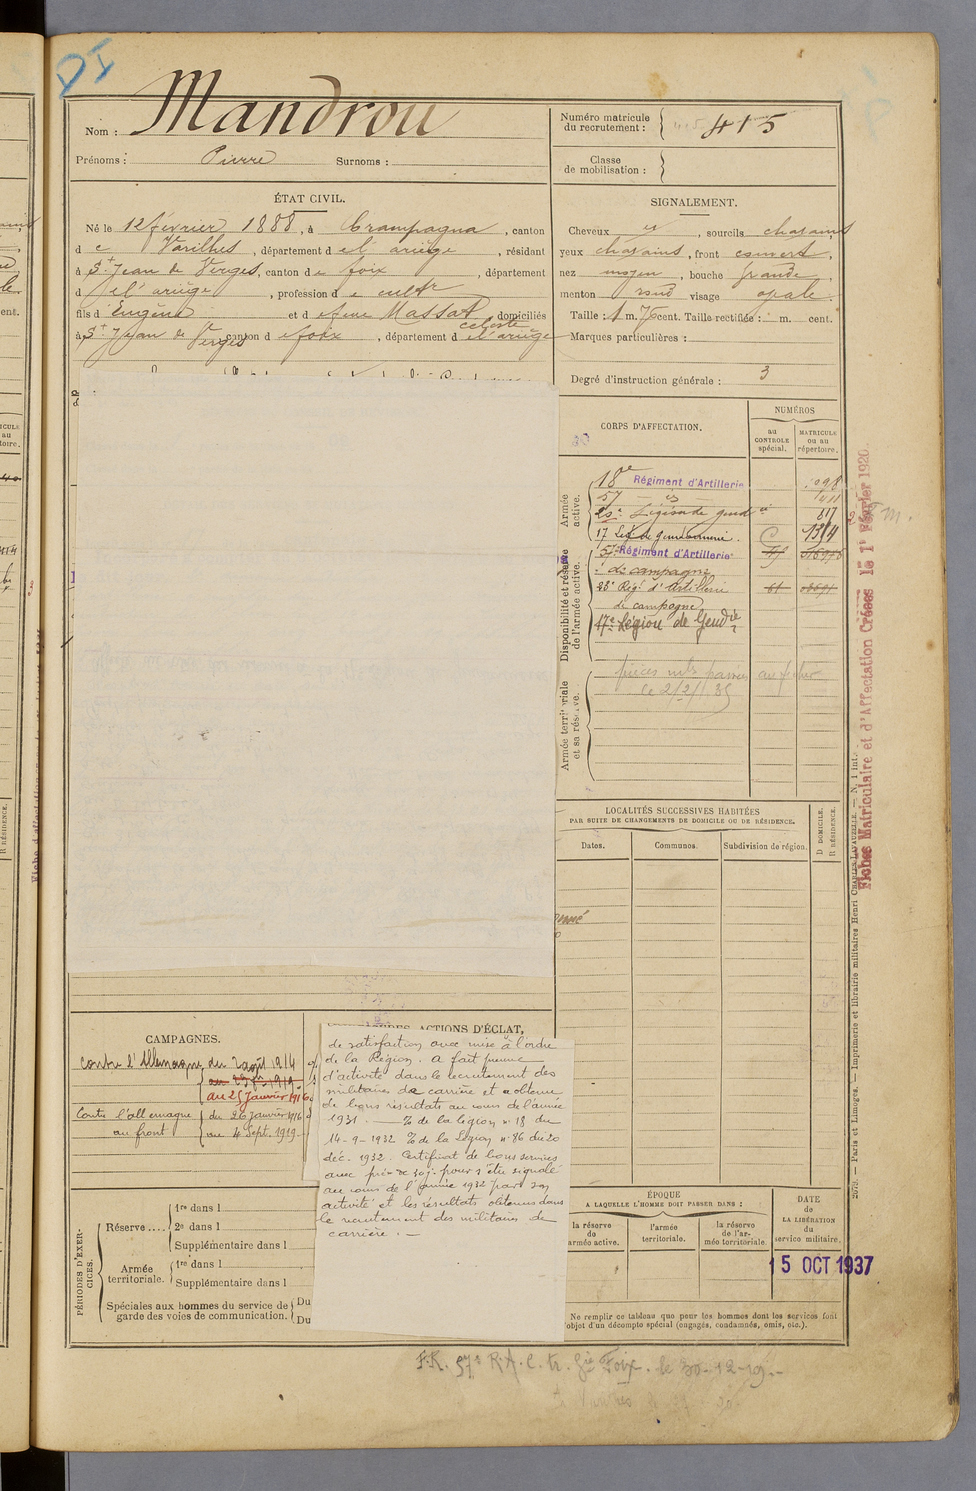 DI
Nom : Mandrou
Prénoms : Pierre Surnoms :
Numéro matricule
du recrutement : 415
Classe
de mobilisation :
ÉTAT CIVIL.
Né le 12 février 1888, à Crampagna, canton
de Varilhes, département de l'ariège, résidant
à St Jean de Verges, canton de foix, département
de l'ariège, profession de cultr
fils d'Eugène et de feue Massat celeste domiciliés
à St Jean de Verges canton de foix, département de l'ariège
SIGNALEMENT.
Cheveux et, sourcils chatains
yeux chatains, front couvert,
nez moyen, bouche grande,
menton rond visage ovale.
Taille : 1 m. 76 cent. Taille rectifiée : m. cent.
Marques particulières :
Degré d'instruction générale : 3
CORPS D'AFFECTATION.
NUMÉROS
au
CONTROLE
spécial.
MATRICULE
ou au
répertoire.
Armée
active.
18e Régiment d'Artillerie
57 — is —
Légion de gend
817
17 Leg. de gendarmerie. 1314
Disponibilité et réserve
de l'armée active.
57e Régiment d'Artillerie
de campagne
23e Régt d'Artillerie 61
de campagne
17e Légion de Gendie
Armée territoriale
et sa réserve.
pièces mtr passées au fichier
le 2/2/35
LOCALITÉS SUCCESSIVES HABITÉES
PAR SUITE DE CHANGEMENTS DE DOMICILE OU DE RÉSIDENCE.
Dates.
Communes.
Subdivision de région.
D DOMICILE.
R RÉSIDENCE.
Fiches Matriculaire et d'Affectation Créées le 1r Février 1926
2579. — Paris et Limoges. — Imprimerie et librairie militaires Henri CHARLES-LAVAUZELLE. — N. 1 int.
CAMPAGNES.
Contre l'Allemagne du 2 août 1914
au 1919
au 25 Janvier 1916
Contre l'allemagne du 26 Janvier 1916
au front au 4 Sept. 1919
ACTIONS D'ÉCLAT,
de satisfaction avec mise à l'ordre
de la Région. A fait preuve
d'activité dans le recrutement des
militaires de carrière et a obtenu
de bons résultats au cours de l'année
1931. — % de la légion n° 18 du
14-9-1932 % de la Légion n° 86 du 20
déc. 1932. Certificat de bons services
avec pour s'être signalé
au cours de l'année 1932 par son
activité et les résultats obtenus dans
le recrutement des militaires de
carrière. —
PÉRIODES D'EXER-
CICES.
Réserve ....
1re dans l
2e dans l
Supplémentaire dans l
Armée
territoriale.
1re dans l
Supplémentaire dans l
Spéciales aux hommes du service de
garde des voies de communication.
Du
Du
ÉPOQUE
A LAQUELLE L'HOMME DOIT PASSER DANS :
la réserve
de
l'armée active.
l'armée
territoriale.
la réserve
de l'ar-
mée territoriale.
DATE
DE
LA LIBÉRATION
du
service militaire.
15 OCT 1937
Ne remplir ce tableau que pour les hommes dont les services font
l'objet d'un décompte spécial (engagés, condamnés, omis, etc.).
F.R. 57e R.A.C. tr. Gie Foix. le 30-12-19.-